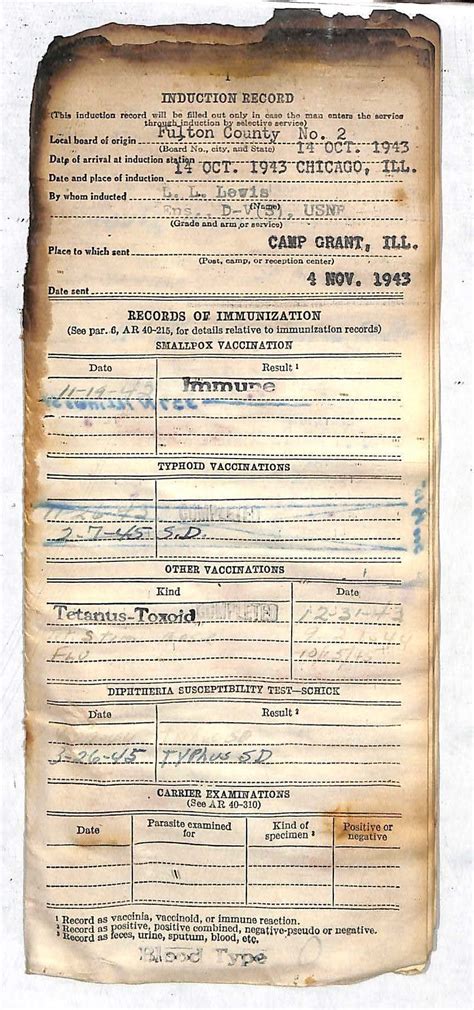 1
INDUCTION RECORD
(This induction record will be filled out only in case the man enters the service
through induction by selective service)
Local board of origin Fulton County No. 2
(Board No., city, and State) 14 OCT. 1943
Date of arrival at induction station
14 OCT. 1943 CHICAGO, ILL.
Date and place of induction
By whom inducted L. L. Lewis
(Name)
Ens., D-V(S), USNR
(Grade and arm or service)
CAMP GRANT, ILL.
Place to which sent
(Post, camp, or reception center)
4 NOV. 1943
Date sent
RECORDS OF IMMUNIZATION
(See par. 6, AR 40-215, for details relative to immunization records)
SMALLPOX VACCINATION
Date Result 1
11-19-43 Immune
TYPHOID VACCINATIONS
COMPLETED
2-7-45 S.D.
OTHER VACCINATIONS
Kind Date
Tetanus-Toxoid, COMPLETED 12-31-43
Flu
DIPHTHERIA SUSCEPTIBILITY TEST—SCHICK
Date Result 2
3-26-45 TYPHUS SD
CARRIER EXAMINATIONS
(See AR 40-310)
Date Parasite examined for Kind of specimen 3 Positive or negative
1 Record as vaccinia, vaccinoid, or immune reaction.
2 Record as positive, positive combined, negative-pseudo or negative.
3 Record as feces, urine, sputum, blood, etc.
Blood Type O